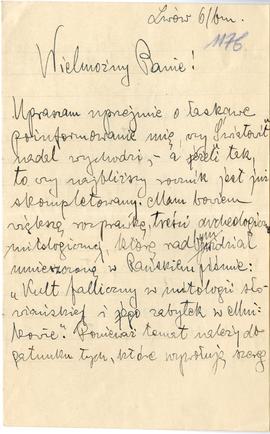 Lwów 6/bm.
1176
Wielmożny Panie!
Upraszam uprzejmie o łaskawe
poinformowanie mię, czy „Światowit"
nadal wychodzi, – a jeżeli tak,
to czy najbliższy rocznik jest już
skompletowany. Mam bowiem
większą rozprawkę, treści archeologiczno
mitologicznej, którą radbym widział
umieszczoną w Pańskiem piśmie:
„Kult falliczny w mitologii sło-
wiańskiej i jego zabytek w
Ponieważ temat należy do
gatunku tych, które wywołują szereg